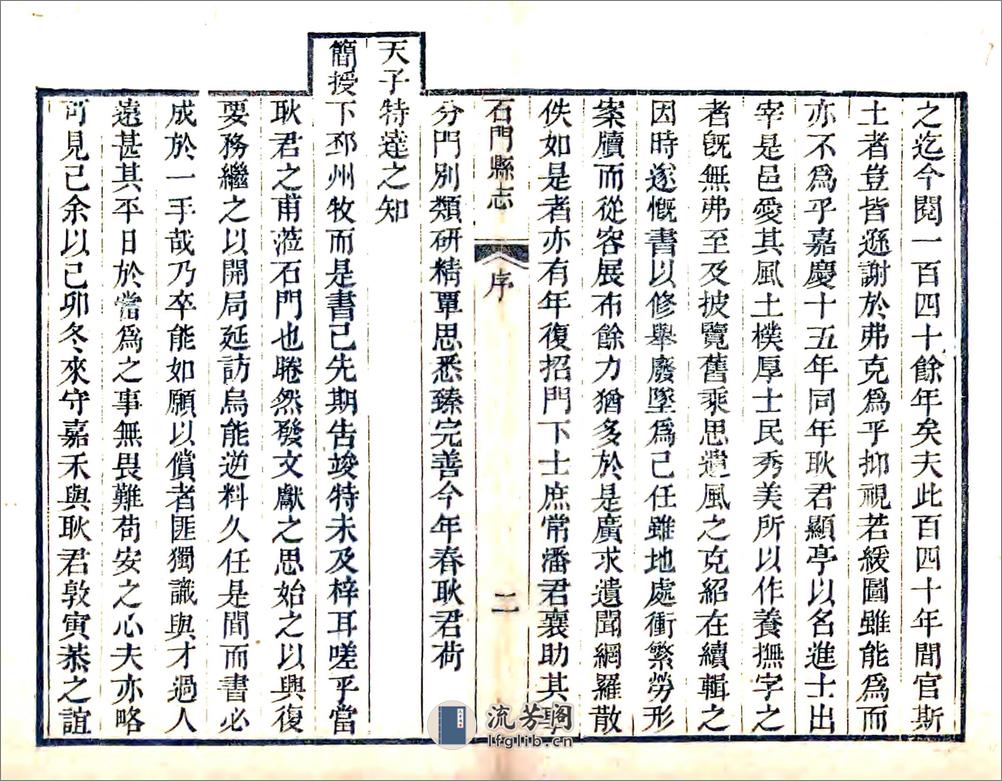 之迄今閱一百四十餘年矣夫此百四十年間官斯
土者豈皆遜謝於弗克爲乎抑視若緩圖雖能爲而
亦不爲乎嘉慶十五年同年耿君顯亭以名進士出
宰是邑愛其風土樸厚士民秀美所以作養撫字之
者旣無弗至及披覽舊乘思遺風之克紹在續輯之
因時遂慨書以修舉廢墜爲己任雖地處衝繁勞形
案牘而從容展布餘力猶多於是廣求遺聞網羅散
佚如是者亦有年復招門下士庶常潘君襄助其
石門縣志 序 二
分門別類研精覃思悉臻完善今年春耿君荷
天子特達之知
簡授下邳州牧而是書已先期告竣特未及梓耳嗟乎當
耿君之甫涖石門也睠然發文獻之思始之以興復
要務繼之以開局延訪烏能逆料久任是間而書必
成於一手哉乃卒能如願以償者匪獨識與才過人
遠甚其平日於嘗爲之事無畏難苟安之心夫亦略
可見已余以己卯冬來守嘉禾與耿君敦寅恭之誼
流芳閣
lfglib.cn